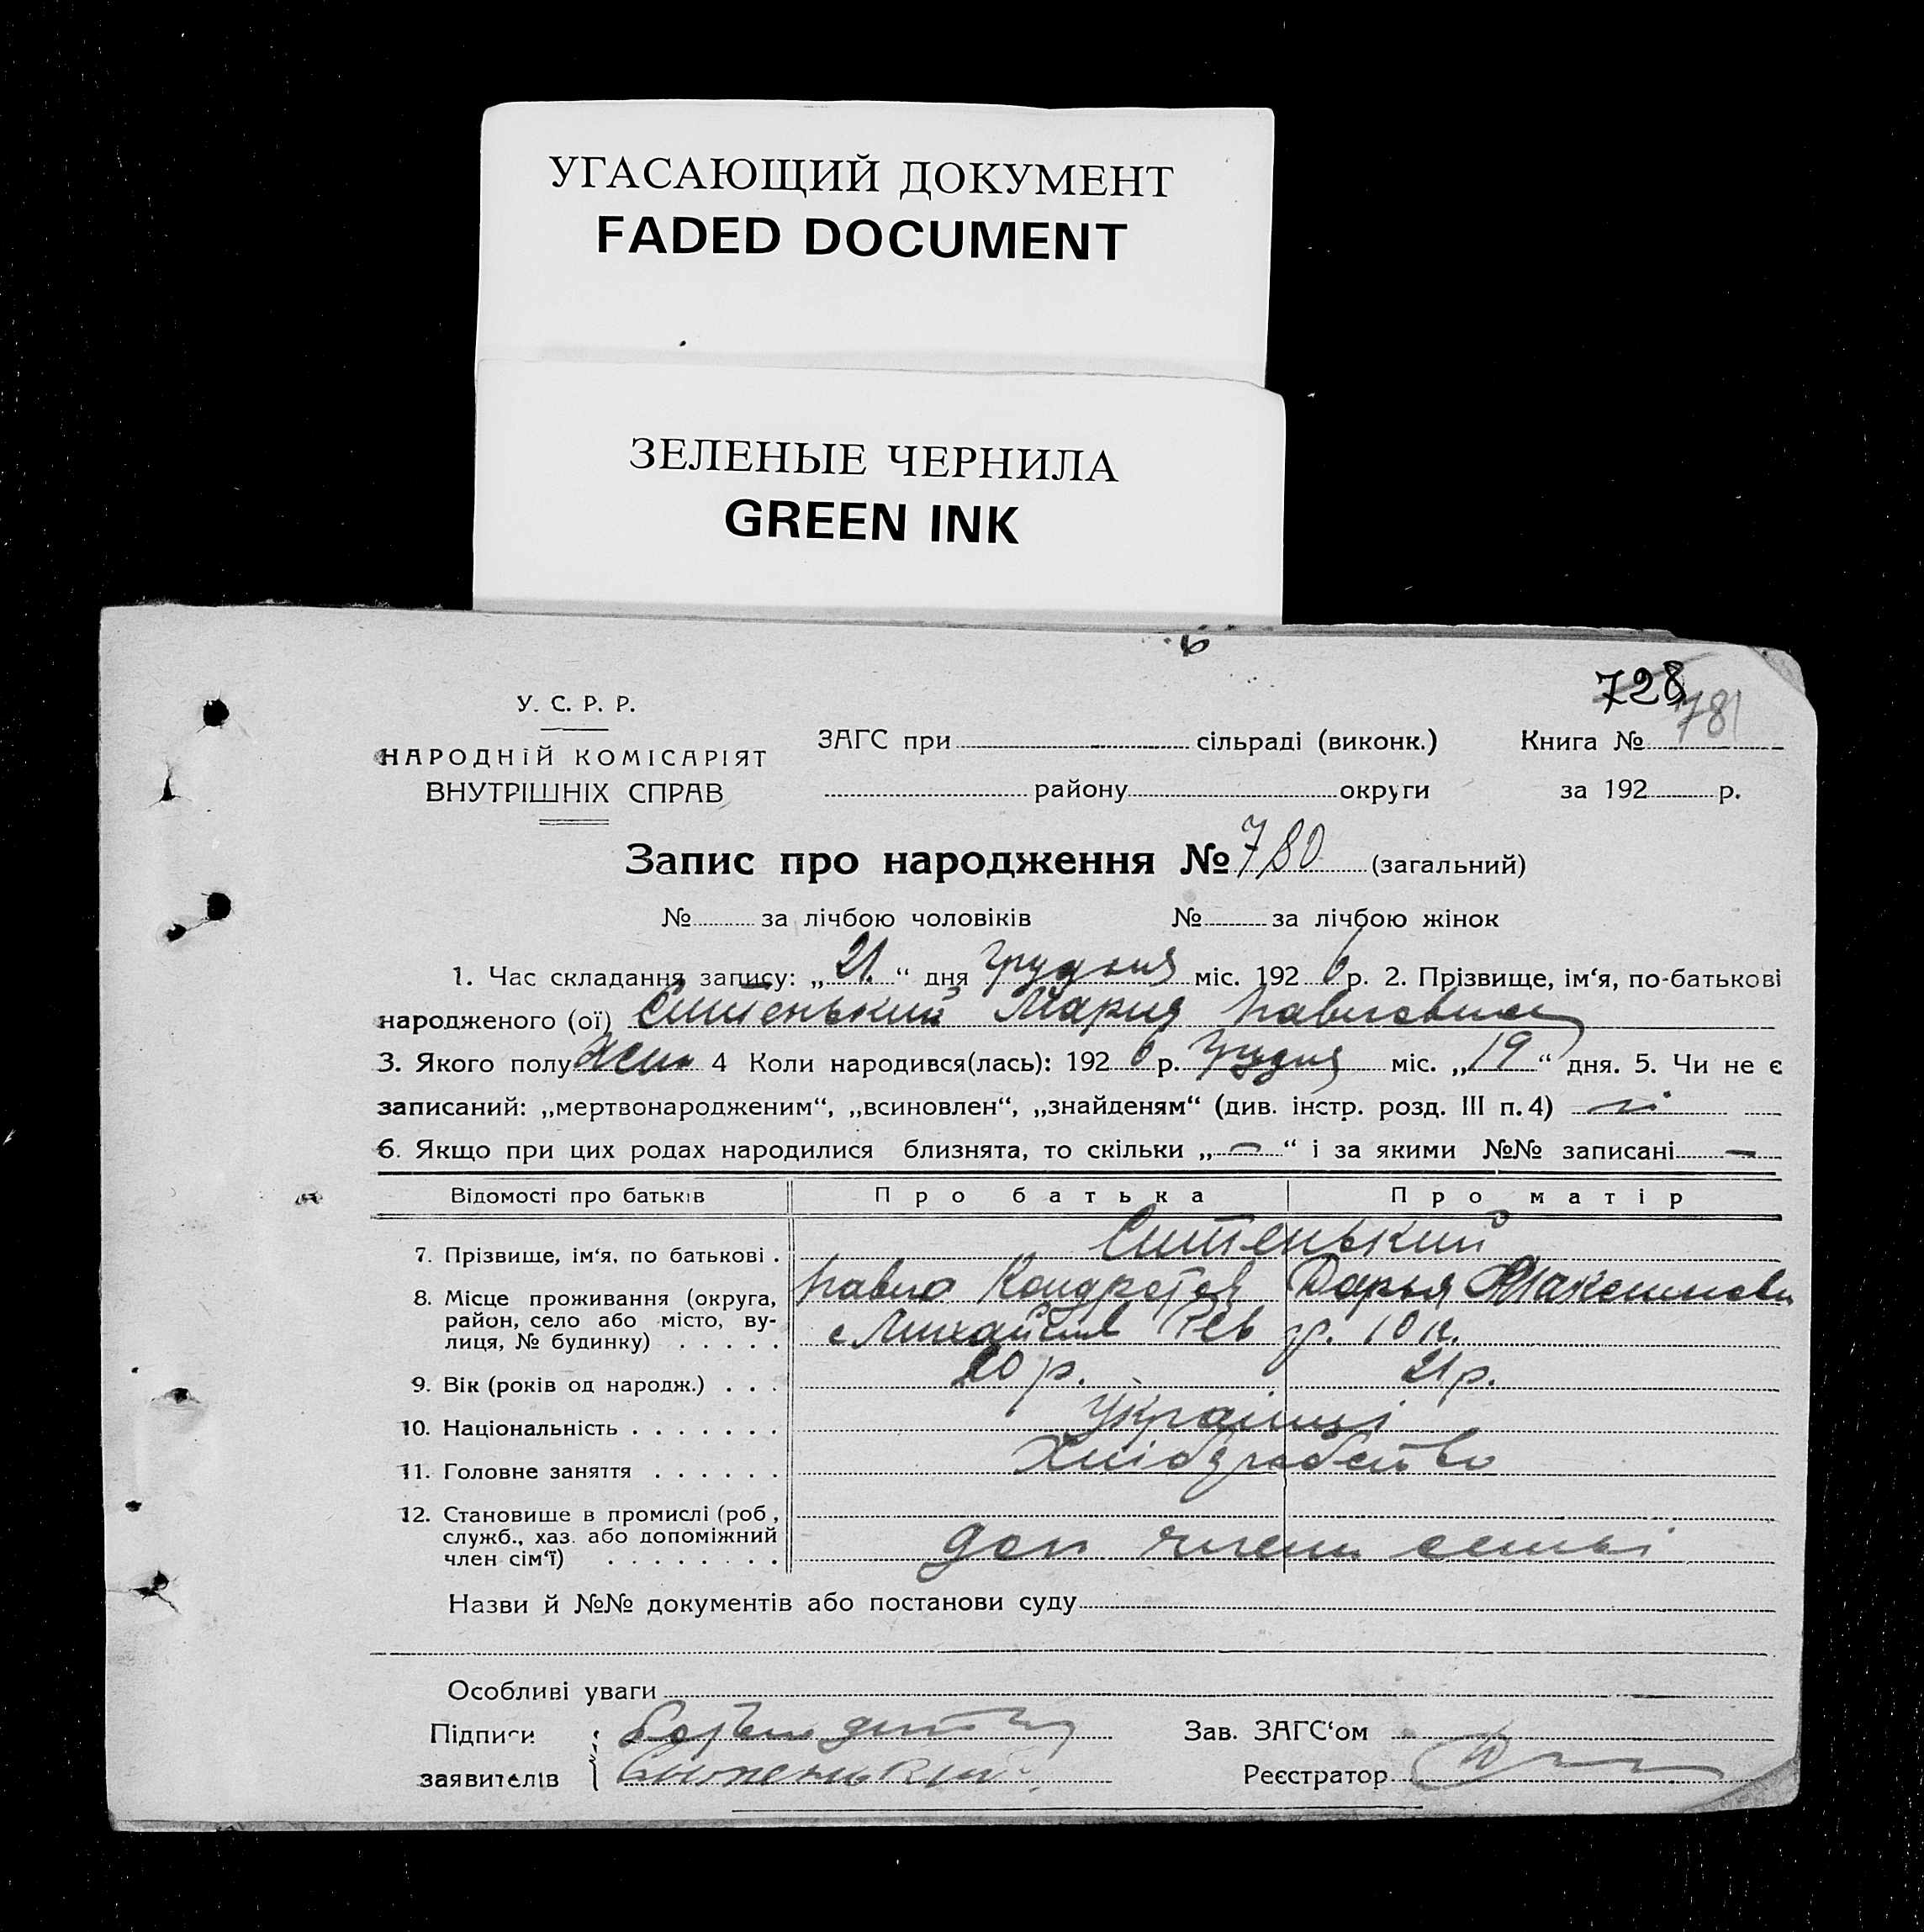 УГАСАЮЩИЙ ДОКУМЕНТ
FADED DOCUMENT
ЗЕЛЕНЫЕ ЧЕРНИЛА
GREEN INK
728
781
У. С. Р. Р.
НАРОДНІЙ КОМІСАРІЯТ
ВНУТРІШНІХ СПРАВ
ЗАГС при сільраді (виконк.) Книга №
району округи за 192 р.
Запис про народження № 780 (загальний)
№ за лічбою чоловіків № за лічбою жінок
1. Час складання запису: „21." дня грудня міс. 1926 р. 2. Прізвище, ім'я, по-батькові
народженого (ої) Ситенький Мария Павловна
3. Якого полу жін 4 Коли народився(лась): 1926 р. Грудня міс. „19" дня. 5. Чи не є
записаний: „мертвонародженим", „всиновлен", „знайденям" (див. інстр. розд. III п. 4) ні
6. Якщо при цих родах народилися близнята, то скільки „—" і за якими №№ записані —
Відомості про батьків Про батька Про матір
7. Прізвище, ім'я, по батькові . Ситенький
Павло Кондратов Дарья Максимовн
8. Місце проживання (округа,
район, село або місто, ву-
лиця, № будинку) . . . . . с Михайлів Рев
9. Вік (років од народж.) . . . 20 р. 21 р.
10. Національність . . . . . . . Українці
11. Головне заняття . . . . . . Хліборобство
12. Становище в промислі (роб,
служб., хаз. або допоміжний
член сім'ї) . . . . . . . . доп члени семьі
Назви й №№ документів або постанови суду
Особливі уваги
Підписи Зав. ЗАГС'ом
заявителів Ситенький Реєстратор